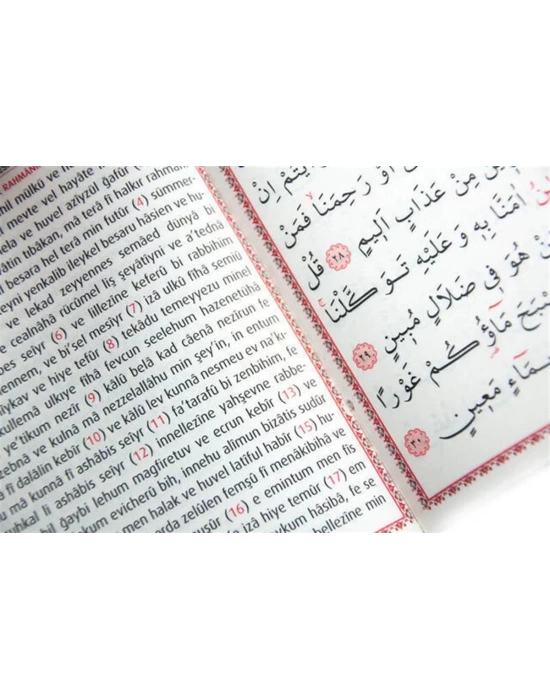 RAHMANİ
mülkü ve
meyte vel hayate
ela ve huvel azîyzül gafûr
tıbâkan, mâ terâ fî halkır rahman
besara hel terâ min futûr (4) sümmer-
yenkalib ileykel besaru hâsien ve hu-
ve lekad zeyyennes semâed dünyâ bi
ce cealnâhâ rücûmel liş şeyâtiyni ve a'tednâ
bes seiyr (6) ve lillezîne keferû bi rabbihim
ennem, ve bi'sel mesiyr (7) izâ ulkû fîhâ semiû
ve hiye tefûr (8) tekâdu temeyyezu minel
kullemâ ulkıye fîhâ fevcun seelehum hazenetühâ
e'tikum nezîr (9) kâlû belâ kad câenâ nezîrun fe
zebnâ ve kulnâ mâ nezzelallâhu min şey'in, in entum
fî dalâlin kebîr (10) ve kâlû lev kunnâ nesmeu ev na'k-
mâ kunnâ fî ashâbis seiyr (11) fa'tarafû bi zenbihim, fe
suhkal li ashâbis seiyr (12) innellezîne yahşevne rabbe-
bil ğaybi lehum mağfiretuv ve ecrun kebîr (13) ve
evicherû bih, innehu alîmun bizâtis sudûr
men halak ve huvel latîful habîr (15) hu-
arda zelûlen femşû fî menâkibihâ ve
nuşûr (16) e emintum men fîs
izâ hiye temûr (17) em
aykum hâsibâ, fe se
bellezîne min
يْتُمْ اِنْ
اَوْ رَحِمَنَا فَمَنْ
ينَ مِنْ عَذَابٍ اَلِيمٍ ٢٨ قُلْ
نُ اٰمَنَّا بِهِ وَعَلَيْهِ تَوَكَّلْنَا
نْ هُوَ فِي ضَلَالٍ مُبِينٍ ٢٩
صْبَحَ مَاؤُكُمْ غَوْرًا
مَاءٍ مَعِينٍ ٣٠